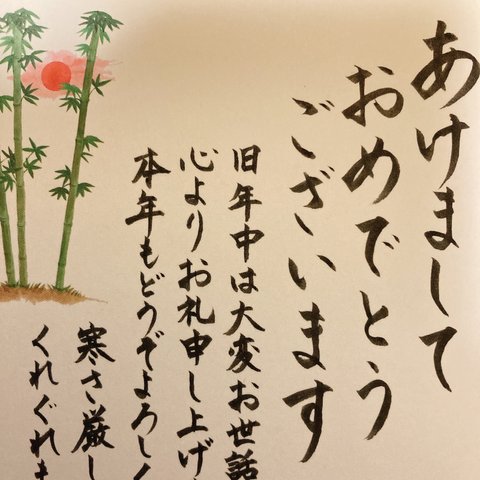 あけまして
おめでとう
ございます
旧年中は大変お世話
心よりお礼申し上げ
本年もどうぞよろしく
寒さ厳し
くれぐれも